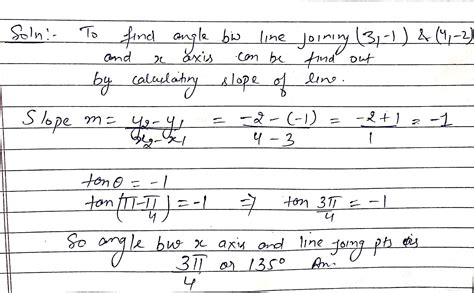 Soln:- To find angle b/w line joining (3,-1) & (4,-2)
and x axis can be find out
by calculating slope of line.
Slope m = y2-y1/x2-x1 = -2-(-1)/4-3 = -2+1/1 = -1
tanθ = -1
tan(π-π/4) = -1 ⇒ tan 3π/4 = -1
So angle b/w x axis and line joing pts is
3π/4 or 135° Ans.